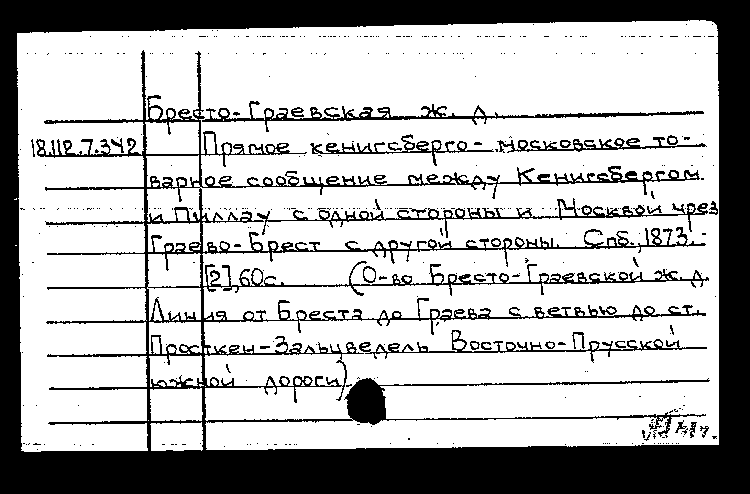 Бресто-Граевская ж. д.
18.112.7.342 Прямое кенигсберго-московское то-
варное сообщение между Кенигсбергом
и Пиллау с одной стороны и Москвой чрез
Граево-Брест с другой стороны. Спб., 1873.-
[2], 60с. (О-во Бресто-Граевской ж. д.
Линия от Бреста до Граева с ветвью до ст.
Просткен-Зальцведель Восточно-Прусской
южной дороги)